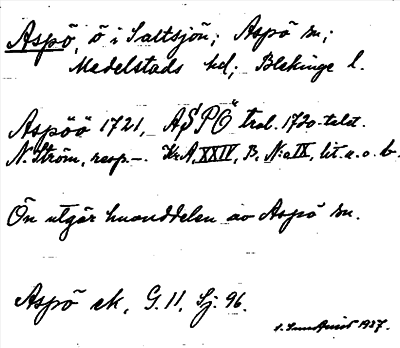 Aspö, ö i Saltsjön; Aspö sn;
Medelstads hd; Blekinge l.
Aspöö 1721, ASPÖ trol. 1720-talet.
N. Ström, resp –. Kr. A, XXIV, B, N:o IX, lit. a. o. b.
Ön utgör huvuddelen av Aspö sn.
Aspö ek, G. 11, Sj. 96.
1937.